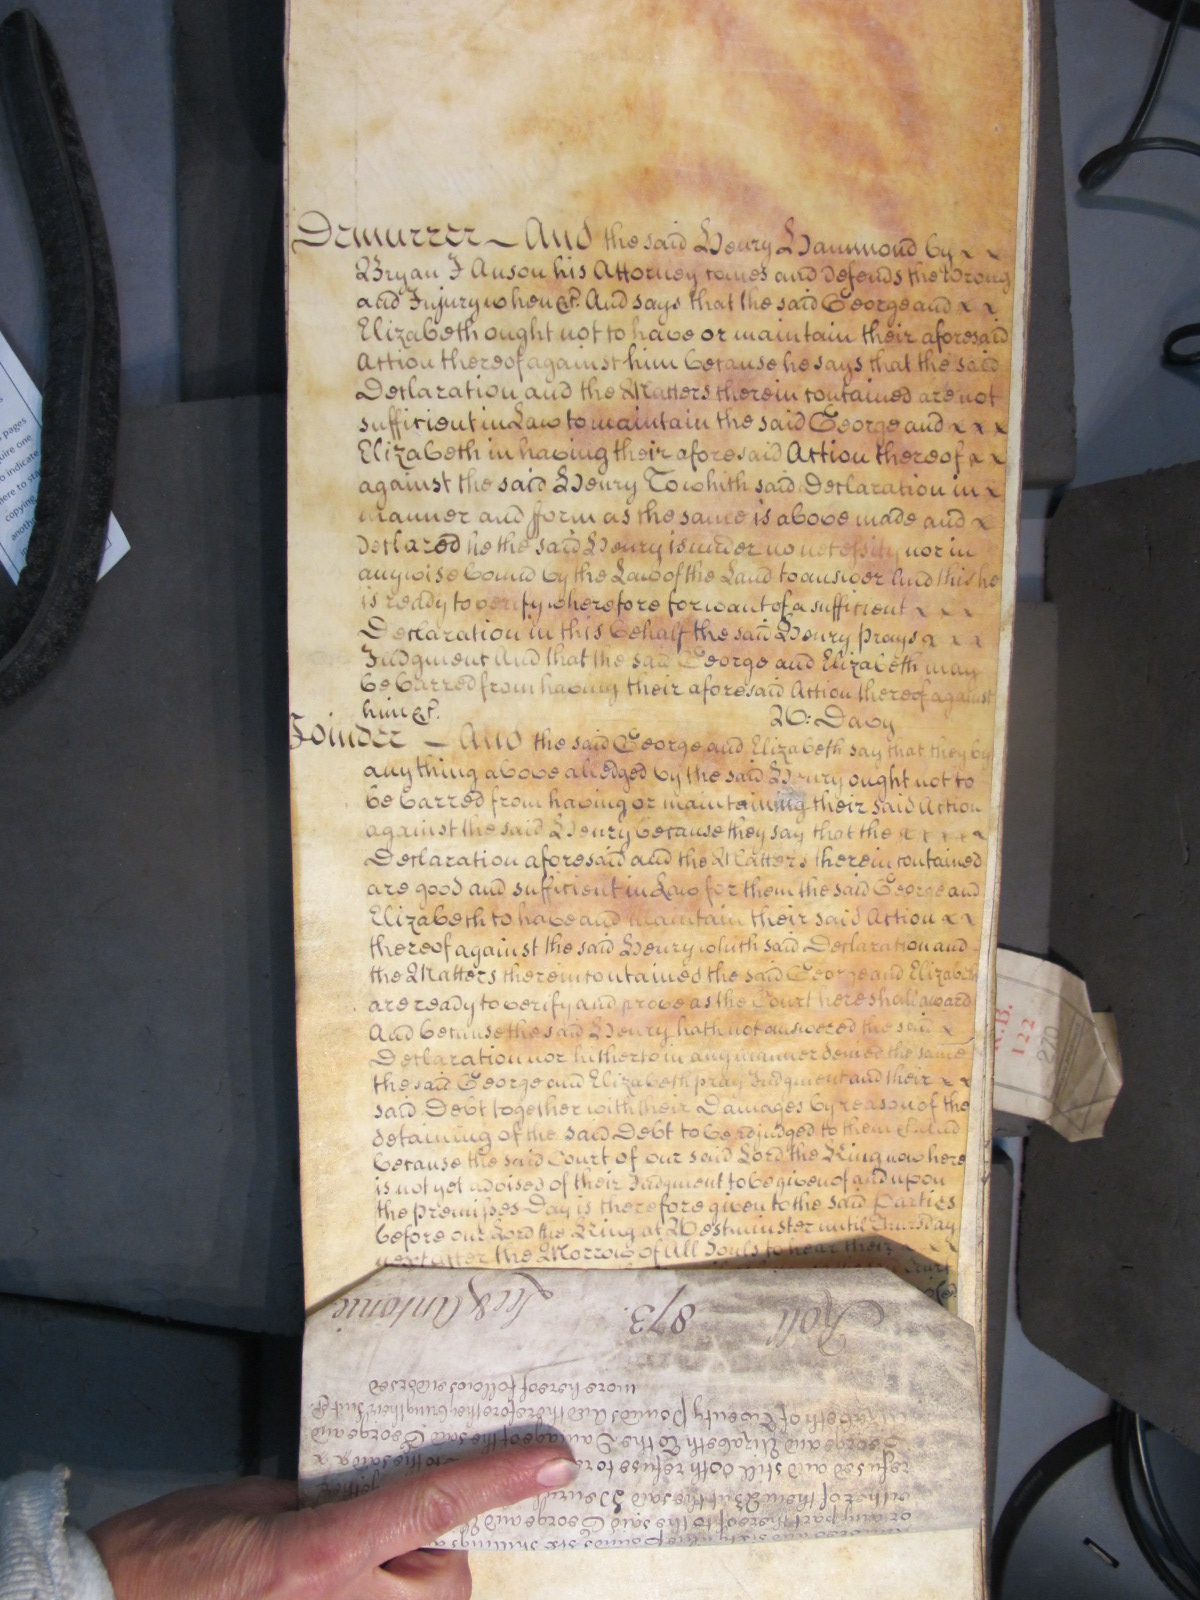 Demurrer – And the said Henry Hammond by x x
Bryan I'Anson his Attorney comes and defends the Wrong
and Injury when &c. And says that the said George and x x
Elizabeth ought not to have or maintain their aforesaid
Action thereof against him because he says that the said
Declaration and the Matters therein contained are not
sufficient in Law to maintain the said George and x x x
Elizabeth in having their aforesaid Action thereof x x
against the said Henry To which said Declaration in x
manner and form as the same is above made and x
declared he the said Henry is under no necessity nor in
anywise bound by the Law of the Land to answer And this he
is ready to verify wherefore for want of a sufficient x x x
Declaration in this behalf the said Henry prays x x x
Judgment And that the said George and Elizabeth may
be barred from having their aforesaid Action thereof against
him &c. W: Davy
Joinder – And the said George and Elizabeth say that they by
any thing above alledged by the said Henry ought not to
be barred from having or maintaining their said Action
against the said Henry because they say that the x x x x x
Declaration aforesaid and the Matters therein contained
are good and sufficient in Law for them the said George and
Elizabeth to have and maintain their said Action x x
thereof against the said Henry which said Declaration and
the Matters therein contained the said George and Elizabeth
are ready to verify and prove as the Court here shall award
And because the said Henry hath not answered the said x
Declaration nor hitherto in any manner denied the same
the said George and Elizabeth pray Judgment and their x x
said Debt together with their Damages by reason of the
detaining of the said Debt to be adjudged to them &c. And
because the said Court of our said Lord the King now here
is not yet advised of their Judgment to be given of and upon
the premisses Day is therefore given to the said Parties
before our Lord the King at Westminster until Thursday
next after the Morrow of All Souls to hear their x x x
K.B.
122
270
Roll 873. Lee & Antonie
more hereof follows indorsed
Elizabeth of Twenty Pounds And therefore they bring their Suit &c.
George and Elizabeth To the Damage of the said George and
refused and still doth refuse to to the said x x
either of them But the said Henry
or any part thereof to the said George and
and sixty five pounds six shillings
pages
quire one
to indicate
here to sta
copying
anoth